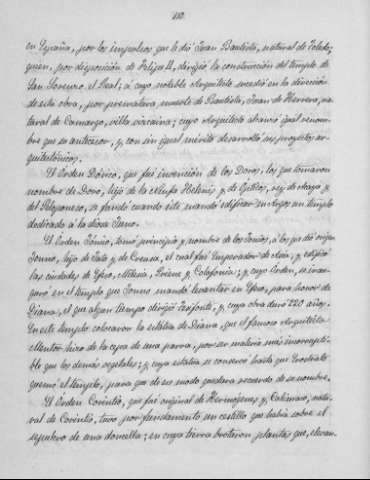 en España, por los impulsos que le dió Juan Bautista, natural de Toledo,
quien, por disposición de Felipe II, dirigió la construcción del templo de
San Lorenzo el Real; a cuyo notable Arquitecto sucedió en la dirección
de esta obra, por prematura muerte de Bautista, Juan de Herrera, na-
tural de Camargo, villa vizcaina; cuyo Arquitecto alcanzó igual renom-
bre que su antecesor, y con sin igual mérito desarrolló sus proyectos ar-
quitectónicos.
El Orden Dórico, que fué invención de los Doros, los que tomaron
nombre de Doro, hijo de la Ninfa Helenis y de Optico, rey de Acaya y
del Peloponeso, se fundó cuando éste mandó edificar en Argos un templo
dedicado á la diosa Juno.
El Orden Jónico, tomó principio y nombre de los Jonios, á los que dió origen
Jonno, hijo de Juto y de Creusa, el cual fué Emperador de Asia; y edificó
las ciudades de Efeso, Mileria, Priene y Colofonia; y cuyo Orden, se inau-
guró en el templo que Jonno mandó levantar en Efeso, para honor de
Diana; el que algun tiempo dirigió Tesifonte, y cuya obra duró 220 años.
En este templo colocaron la estátua de Diana, que el famoso Arquitecto
Mentor hizo de la cepa de una parra, por ser materia más incorrupti-
ble que los demás vegetales; y cuya estátua se conservó hasta que Erostrato
quemó el templo, para que de ese modo quedara recuerdo de su nombre.
El Orden Corintio, que fué original de Hermógenes y Calímaco, natu-
ral de Corintio, tuvo por fundamento un castillo que había sobre el
sepulcro de una doncella; en cuya tierra brotaron plantas que, elevan-